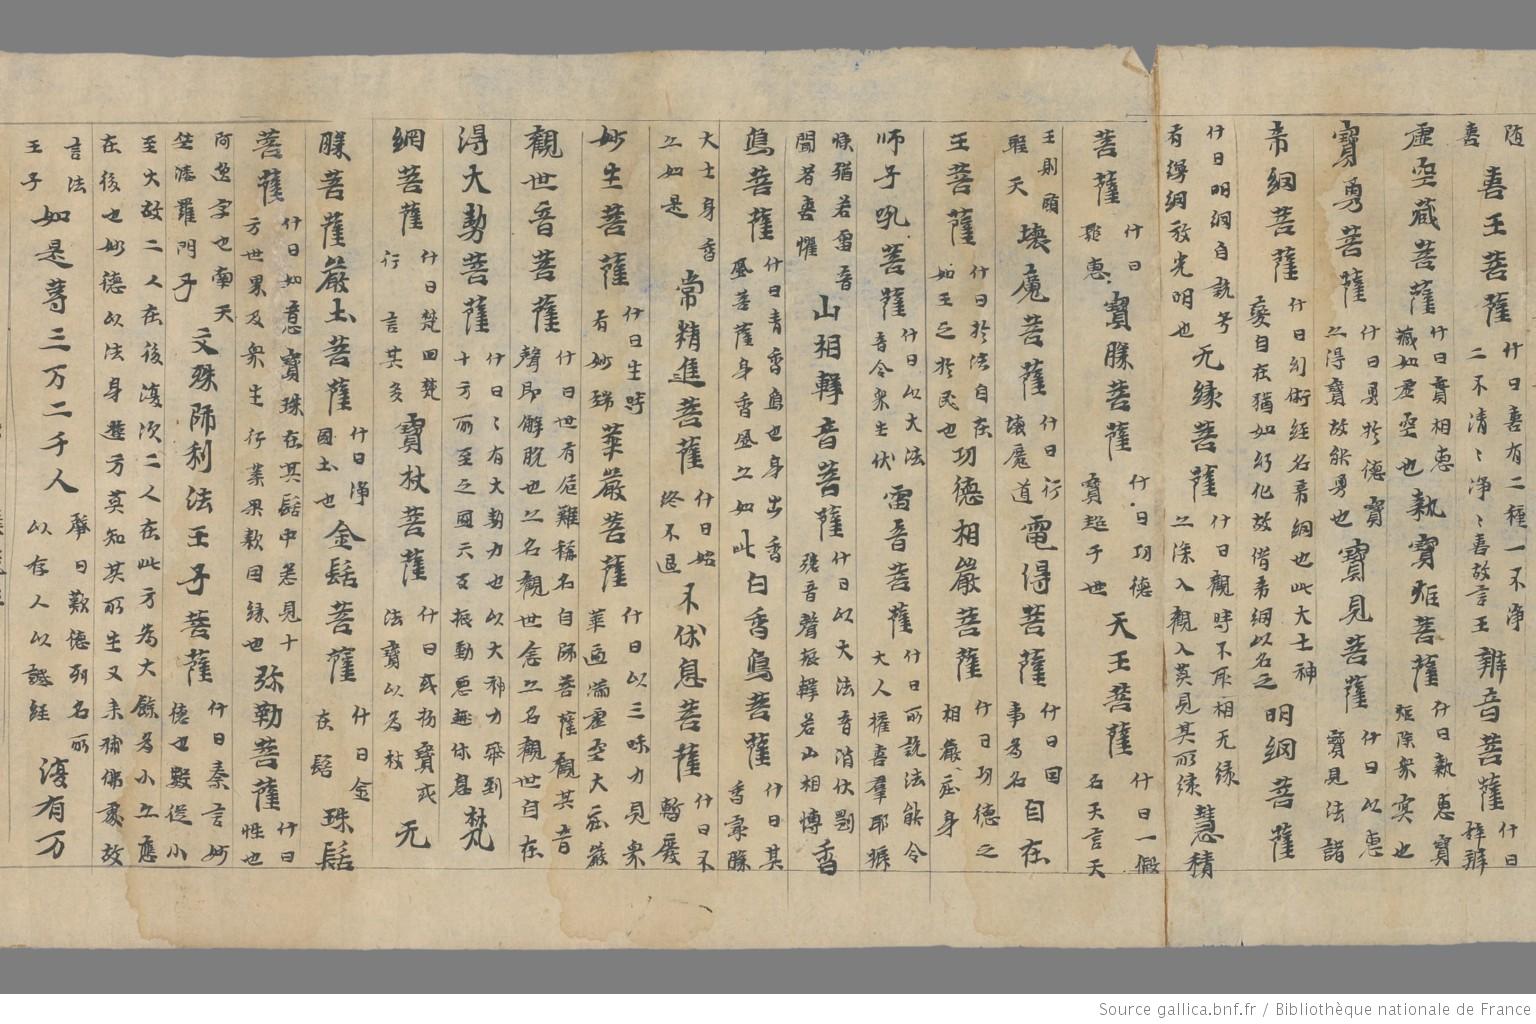 随善喜王菩薩什曰喜有二種一不淨二不清〻淨〻喜故言王辯音菩薩什曰辞辯
虛空藏菩薩什曰實相惠藏如虛空也執寶炬菩薩什曰執惠寶炬除衆冥也
寶勇菩薩什曰勇於德寶亦得寶故能勇也寶見菩薩什曰以惠寶見法諸
帝網菩薩什曰幻術經名帝網也此大士神變自在猶如幻化故借帝網以名之明網菩薩
什曰明網自說号有縵網放光明也无緣菩薩什曰觀時不取相无緣亦深入觀入莫見其所緣慧積
菩薩什曰聚惠寶勝菩薩什曰功德寶超于世天王菩薩什曰一假名天言天
王則賢天壞魔菩薩什曰行壞魔道電得菩薩什曰因事為名自在
王菩薩什曰於法自在如王之於民也功德相嚴菩薩什曰功德之相嚴莊身
師子吼菩薩什曰以大法音令衆生伏雷音菩薩什曰所說法能令大人懽喜羣耶振
悚猶若雷音聞者喜懼山相擊音菩薩什曰以大法音消伏剛強音聲振擊若山相愽香
象菩薩什曰青香象也身出香風菩薩身香風亦如此白香象菩薩什曰其香最勝
大士身香亦如是常精進菩薩什曰始終不退不休息菩薩什曰不暫廢
妙生菩薩什曰生時有妙瑞華嚴菩薩什曰以三昧力見衆華遍滿虛空大莊嚴
觀世音菩薩什曰世有危難稱名自歸菩薩觀其音聲即解脫也亦名觀世念亦名觀世自在
得大勢菩薩什曰〻有大勢力也以大神力飛到十方所至之國六反振動惡趣休息梵
網菩薩什曰梵四梵行言其多寶杖菩薩什曰或物寶或法寶以為杖无
勝菩薩嚴土菩薩什曰淨國土也金髻菩薩什曰金在髻珠髻
菩薩什曰如意寶珠在其髻中悉見十方世界及衆生行業果報因緣也弥勒菩薩什曰性也
阿逸字也南天竺婆羅門子文殊師利法王子菩薩什曰秦言妙德也數從小
至大故二人在後復次二人在此方為大餘為小亦應在後也妙德以法身遊方莫知其所生又来補佛處故
言法王子如是等三万二千人肇曰歎德列名所以存人以證經復有万
Source gallica.bnf.fr / Bibliothèque nationale de France